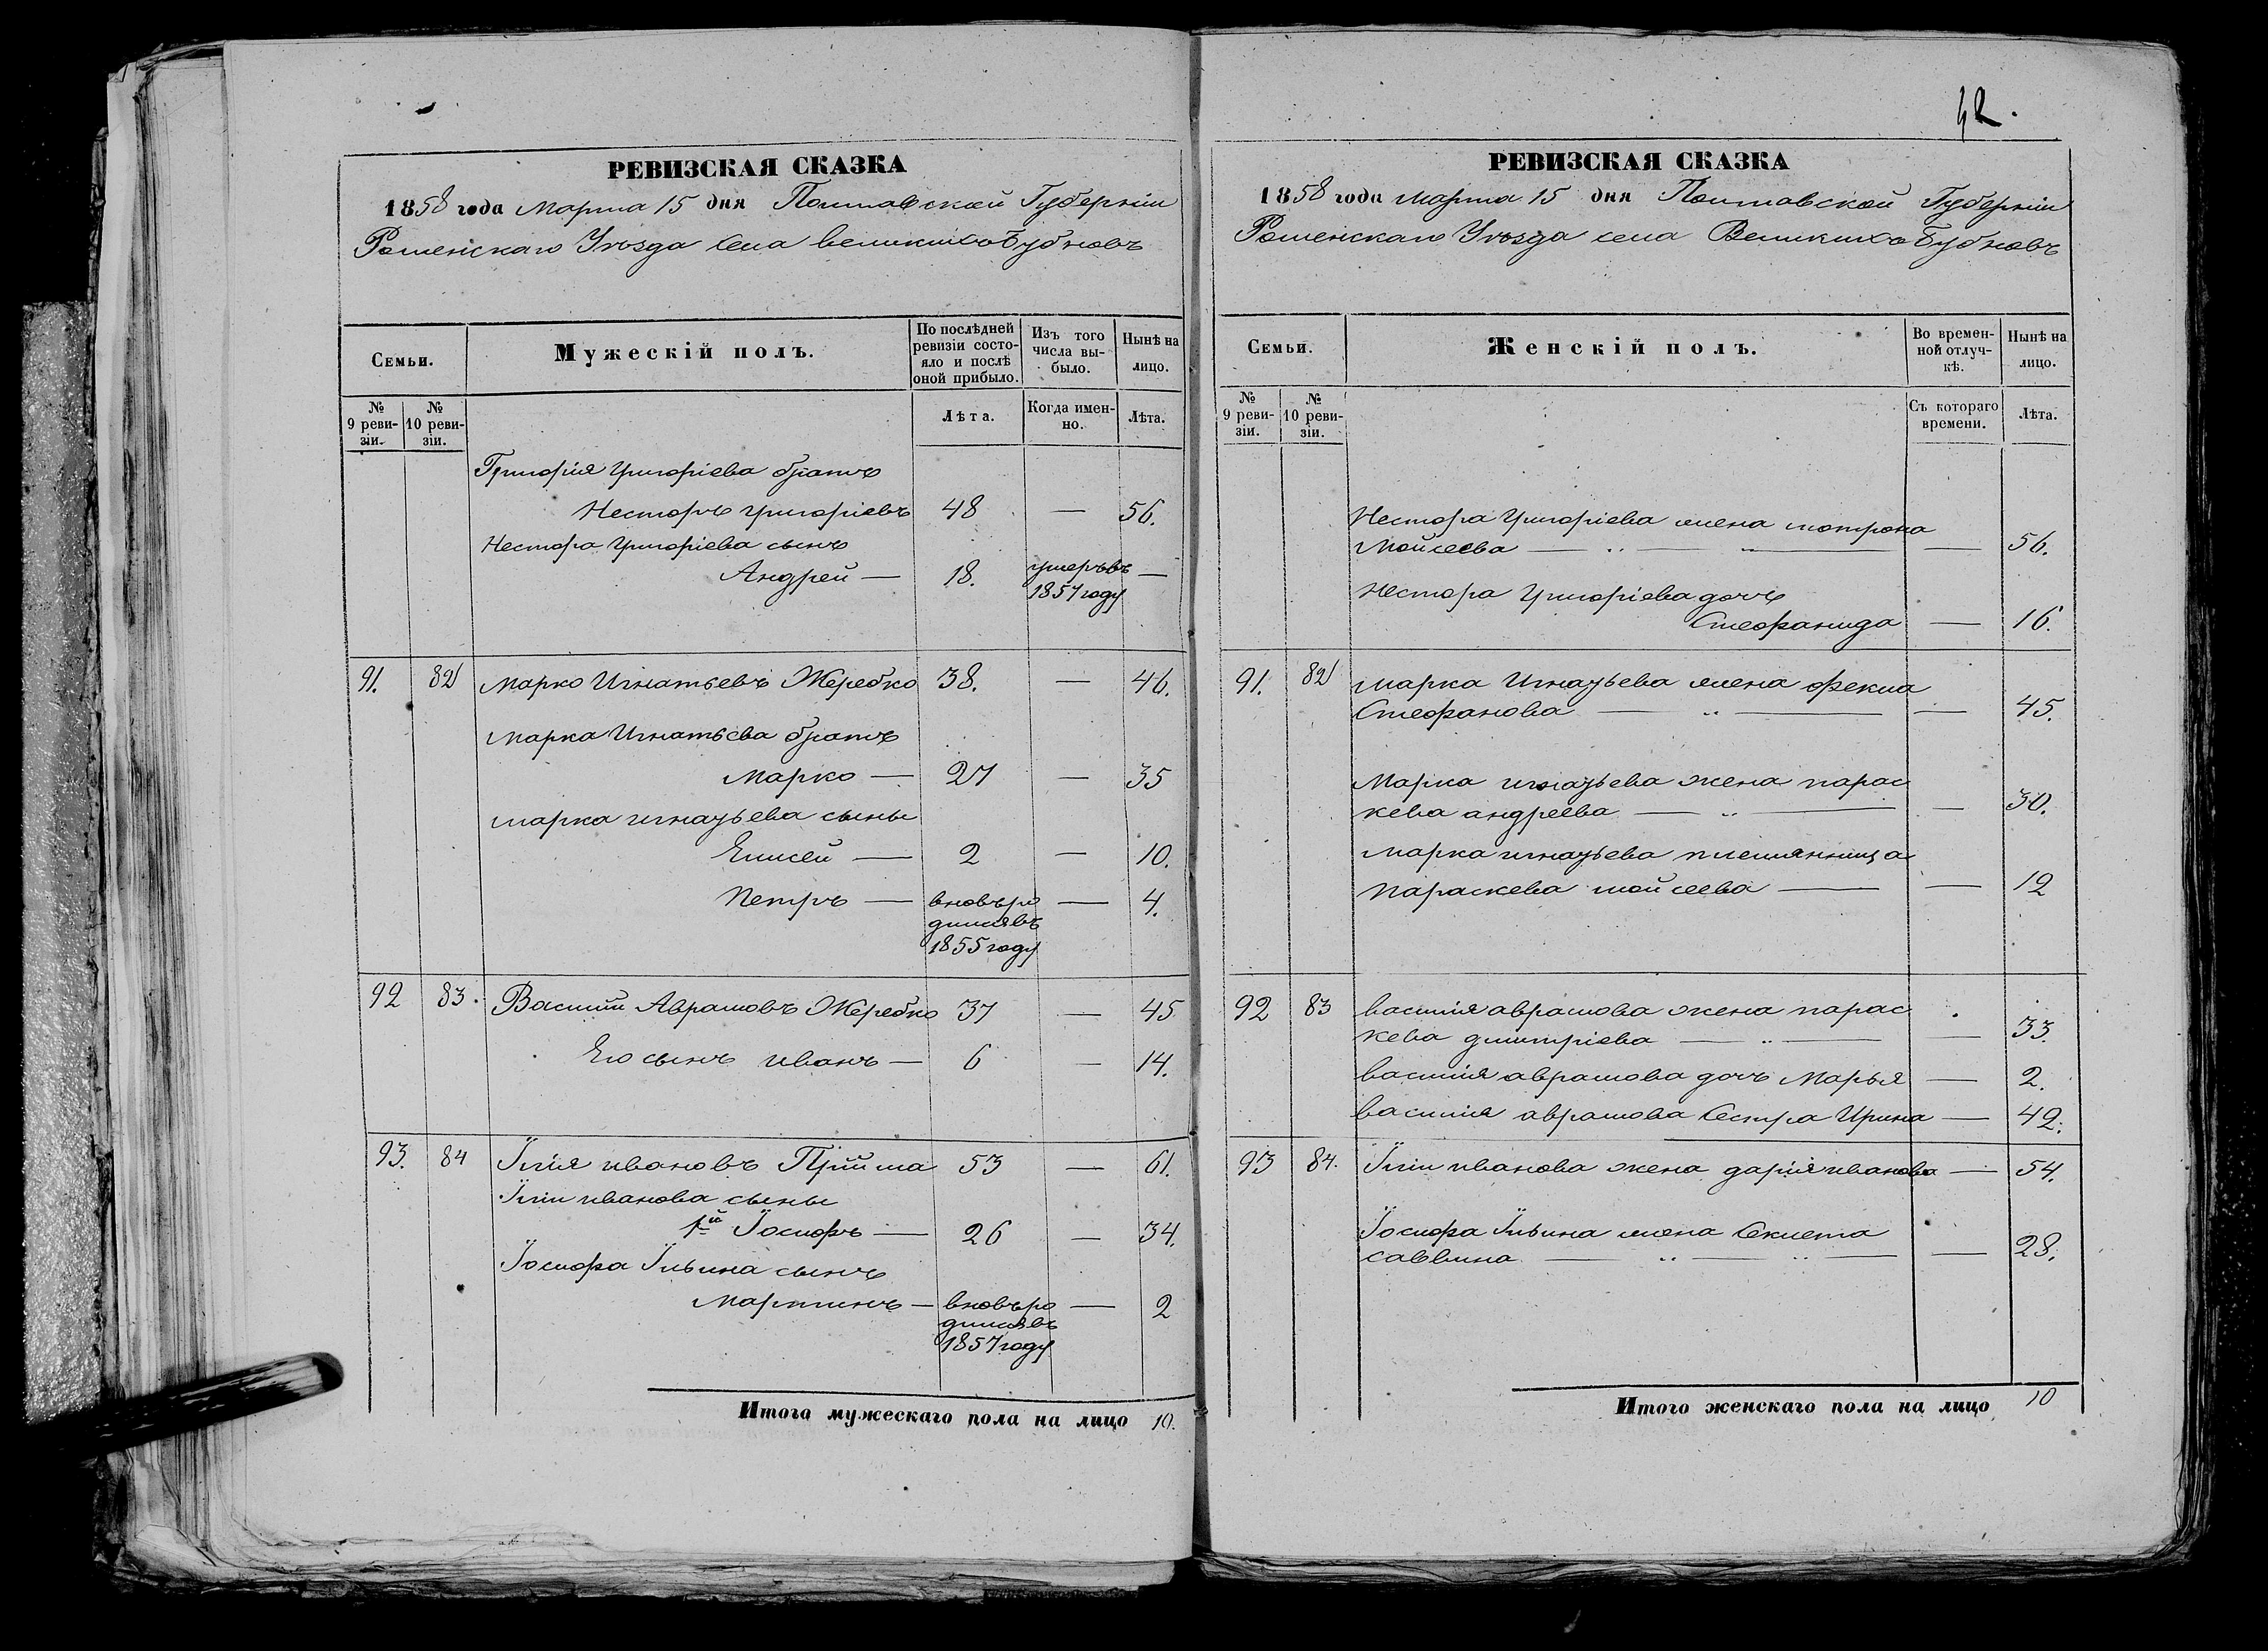 РЕВИЗСКАЯ СКАЗКА
1858 года Марта 15 дня Полтавской Губерніи
Роменскаго Уѣзда села великихъ Бубновъ
Семьи.
Мужескій полъ.
По послѣдней ревизіи состояло и послѣ оной прибыло.
Изъ того числа выбыло.
Нынѣ на лицо.
№ 9 ревизіи.
№ 10 ревизіи.
Лѣта.
Когда именно.
Лѣта.
Григорія Григоріева братъ
Несторъ Григоріевъ 48 — 56.
Нестора Григоріева сынъ
Андрей — 18. умеръ въ 1857 году —
91. 82 Марко Игнатьевъ Жеребко 38. — 46.
Марка Игнатьева братъ
Марко — 27 — 35
Марка игнатьева сыны
Елисей — 2 — 10.
Петръ — вновь родился въ 1855 году — 4.
92 83. Василій Аврамовъ Жеребко 37 — 45
Его сынъ иванъ — 6 — 14.
93. 84 Їлія ивановъ Прійма 53 — 61.
Їліи иванова сыны
1й Їосифъ — 26 — 34.
Їосифа Їльина сынъ
Мартинъ — вновь родился въ 1857 году — 2
Итого мужескаго пола на лицо 10.
42.
РЕВИЗСКАЯ СКАЗКА
1858 года Марта 15 дня Полтавской Губерніи
Роменскаго Уѣзда села Великихъ Бубновъ
Семьи.
Женскій полъ.
Во временной отлучкѣ.
Нынѣ на лицо.
№ 9 ревизіи.
№ 10 ревизіи.
Съ котораго времени.
Лѣта.
Нестора Григоріева жена мотрона
Мойсеева — „ — „ — — 56.
Нестора Григоріева дочь
Стефанида — 16.
91. 82 Марка Игнатьева жена фекла
Стефанова — „ — — 45.
Марка игнатьева жена парас
кева андреева — „ — — 30.
Марка игнатьева племянница
параскева мойсеева — — 12
92 83 василія аврамова жена парас
кева димитріева — „ — — 33.
василія аврамова дочь Марья — 2.
василія аврамова Сестра Ирина — 42.
93 84. Їліи иванова жена дарія иванова — 54.
Їосифа Їльина жена Секлета
саввина — „ — „ — — 28.
Итого женскаго пола на лицо 10